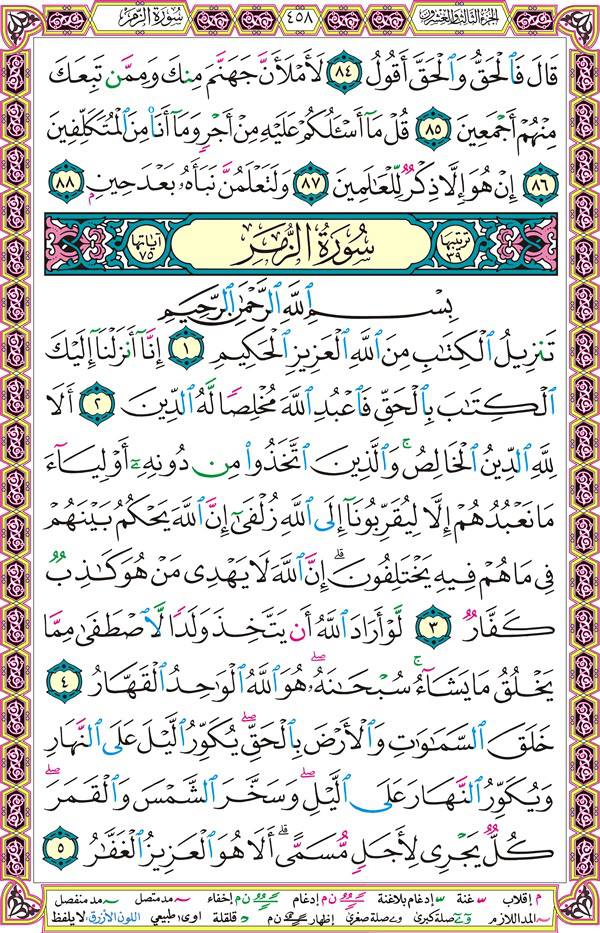 الجزء الثالث والعشرون ٤٥٨ سُورَةُ الزُّمَرِ
قَالَ فَٱلْحَقُّ وَٱلْحَقَّ أَقُولُ ٨٤ لَأَمْلَأَنَّ جَهَنَّمَ مِنكَ وَمِمَّن تَبِعَكَ
مِنْهُمْ أَجْمَعِينَ ٨٥ قُلْ مَآ أَسْـَٔلُكُمْ عَلَيْهِ مِنْ أَجْرٍ وَمَآ أَنَا۠ مِنَ ٱلْمُتَكَلِّفِينَ
٨٦ إِنْ هُوَ إِلَّا ذِكْرٌ لِّلْعَـٰلَمِينَ ٨٧ وَلَتَعْلَمُنَّ نَبَأَهُۥ بَعْدَ حِينٍۭ ٨٨
ترتيبها ٣٩ سُورَةُ الزُّمَرِ آياتها ٧٥
بِسْمِ ٱللَّهِ ٱلرَّحْمَـٰنِ ٱلرَّحِيمِ
تَنزِيلُ ٱلْكِتَـٰبِ مِنَ ٱللَّهِ ٱلْعَزِيزِ ٱلْحَكِيمِ ١ إِنَّآ أَنزَلْنَآ إِلَيْكَ
ٱلْكِتَـٰبَ بِٱلْحَقِّ فَٱعْبُدِ ٱللَّهَ مُخْلِصًا لَّهُ ٱلدِّينَ ٢ أَلَا
لِلَّهِ ٱلدِّينُ ٱلْخَالِصُ ۚ وَٱلَّذِينَ ٱتَّخَذُوا۟ مِن دُونِهِۦٓ أَوْلِيَآءَ
مَا نَعْبُدُهُمْ إِلَّا لِيُقَرِّبُونَآ إِلَى ٱللَّهِ زُلْفَىٰٓ إِنَّ ٱللَّهَ يَحْكُمُ بَيْنَهُمْ
فِى مَا هُمْ فِيهِ يَخْتَلِفُونَ ۗ إِنَّ ٱللَّهَ لَا يَهْدِى مَنْ هُوَ كَـٰذِبٌ
كَفَّارٌ ٣ لَّوْ أَرَادَ ٱللَّهُ أَن يَتَّخِذَ وَلَدًا لَّٱصْطَفَىٰ مِمَّا
يَخْلُقُ مَا يَشَآءُ ۚ سُبْحَـٰنَهُۥ ۖ هُوَ ٱللَّهُ ٱلْوَٰحِدُ ٱلْقَهَّارُ ٤
خَلَقَ ٱلسَّمَـٰوَٰتِ وَٱلْأَرْضَ بِٱلْحَقِّ ۖ يُكَوِّرُ ٱلَّيْلَ عَلَى ٱلنَّهَارِ
وَيُكَوِّرُ ٱلنَّهَارَ عَلَى ٱلَّيْلِ ۖ وَسَخَّرَ ٱلشَّمْسَ وَٱلْقَمَرَ ۖ
كُلٌّ يَجْرِى لِأَجَلٍ مُّسَمًّى ۗ أَلَا هُوَ ٱلْعَزِيزُ ٱلْغَفَّـٰرُ ٥
م إقلاب غنة إدغام بلاغنة ن م إدغام ن م إخفاء مد متصل مد منفصل
المد اللازم صلة كبرى صلة صغرى إظهار ن م قلقلة اوى طبيعي اللون الأزرق لا يلفظ